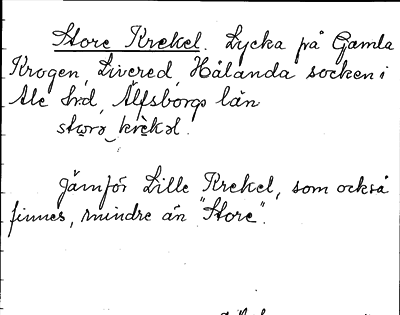 Store Krekel. Lycka på Gamla
Krogen, Livered, Hålanda socken i
Ale hrd, Älfsborgs län
storə krekəl.
Jämför Lille Krekel, som också
finnes, mindre än "Store".